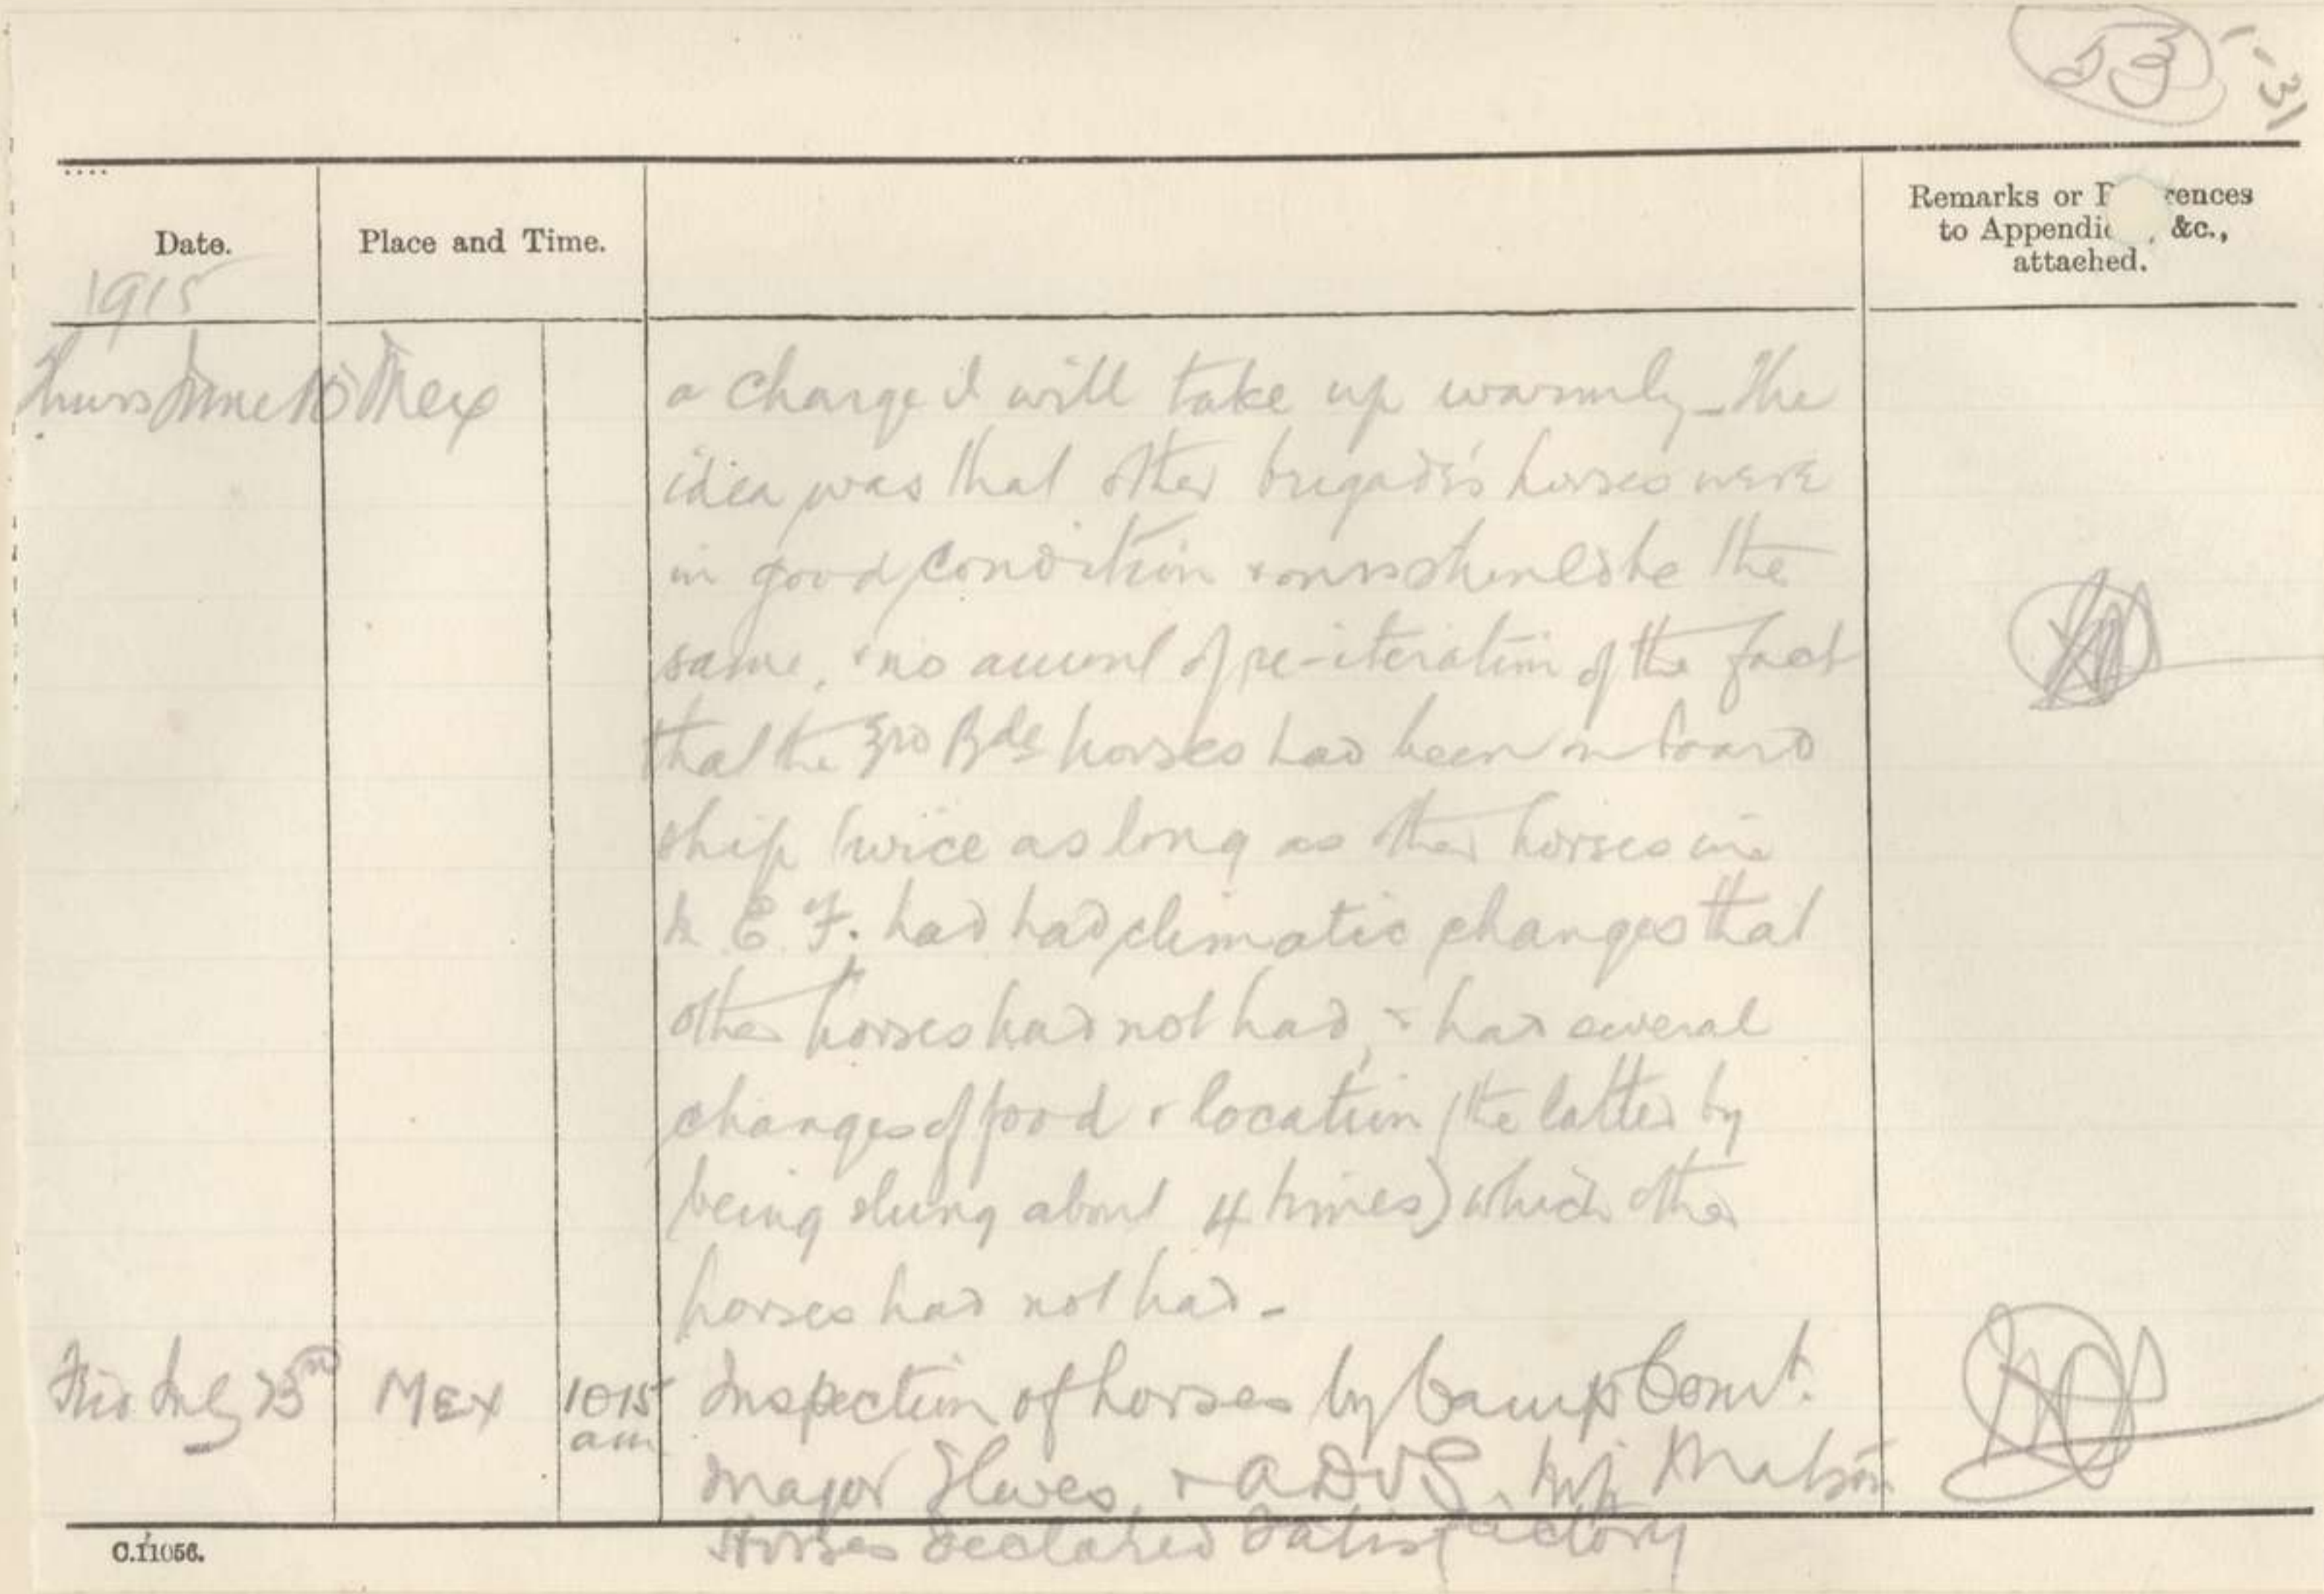 53
1-31
Date.
Place and Time.
Remarks or R rences
to Appendic , &c.,
attached.
1915
Thurs June 10 Mex
a charge I will take up warmly - The
idea was that other brigade's horses were
in good condition & ours should be the
same, & no amount of re-iteration of the fact
that the 3rd Bde horses had been on board
ship twice as long as other horses in
E. F. had had climatic changes that
other horses had not had, & had several
changes of food & location (the latter by
being slung about 4 times) which other
horses had not had -
Fri July 23rd MEX 1015 am Inspection of horses by Camp Comt.
Major & ADVS. Maj
Horses declared satisfactory
C.11056.